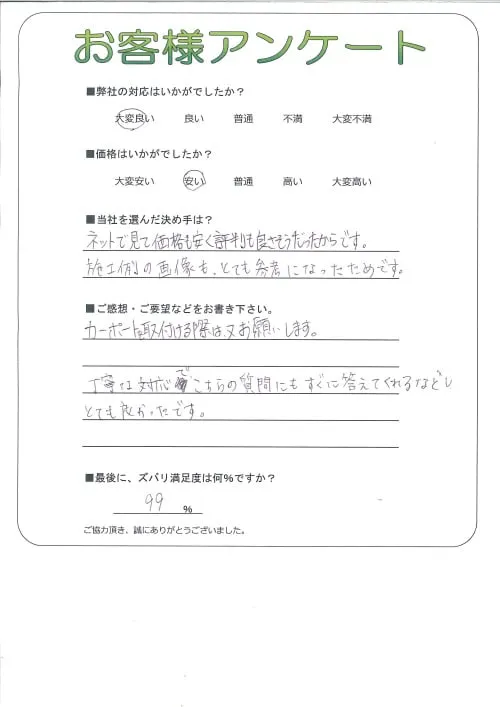 お客様アンケート
■弊社の対応はいかがでしたか?
大変良い 良い 普通 不満 大変不満
■価格はいかがでしたか?
大変安い 安い 普通 高い 大変高い
■当社を選んだ決め手は?
ネットで見て価格も安く評判も良さそうだったからです。
施工例の画像も、とても参考になったためです。
■ご感想・ご要望などをお書き下さい。
カーポート取付ける際は又お願いします。
丁寧な対応でこちらの質問にもすぐに答えてくれるなどし
とても良かったです。
■最後に、ズバリ満足度は何%ですか?
99 %
ご協力頂き、誠にありがとうございました。